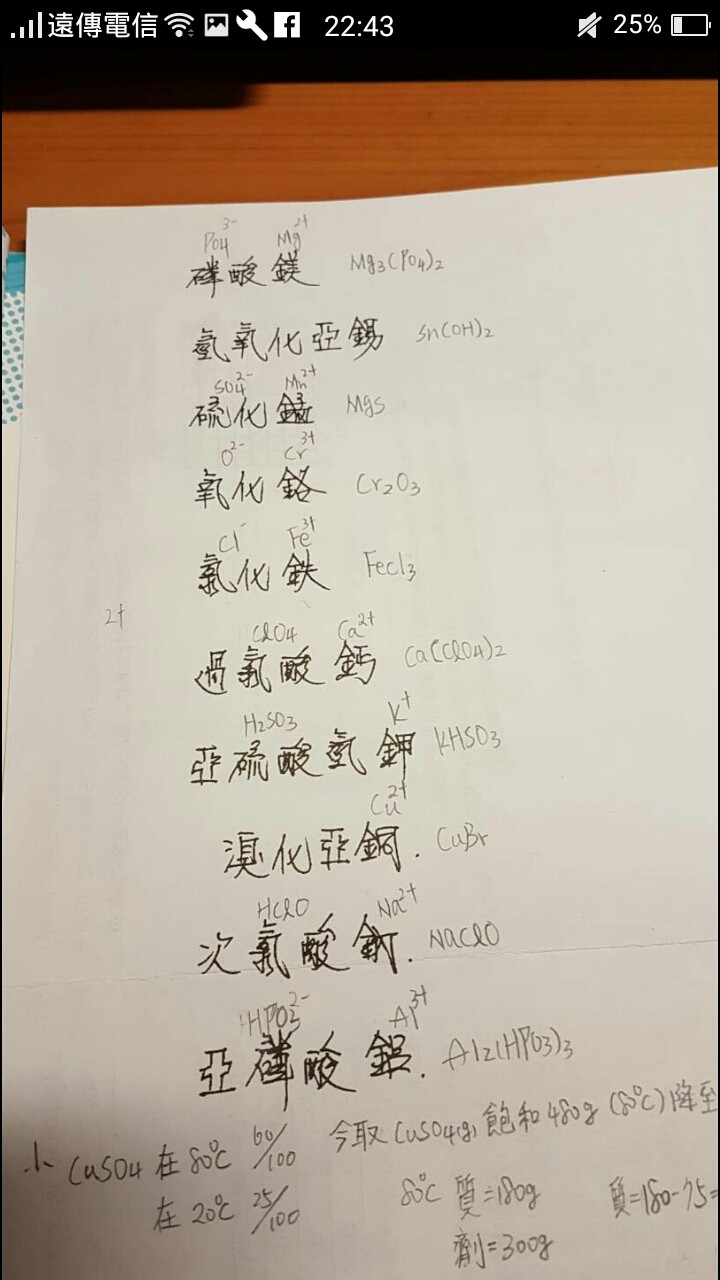 遠傳電信 22:43 25%
PO4 3- Mg2+
磷酸鎂 Mg3(PO4)2
氫氧化亞錫 Sn(OH)2
SO4 2- Mn2+
硫化錳 MgS
O2- Cr3+
氧化鉻 Cr2O3
Cl- Fe3+
氯化鉄 FeCl3
2+
ClO4 Ca2+
過氯酸鈣 Ca(ClO4)2
H2SO3 K+
亞硫酸氫鉀 KHSO3
Cu2+
溴化亞銅. CuBr
HClO Na2+
次氯酸鈉. NaClO
HPO3 2- Al3+
亞磷酸鋁. Al2(HPO3)3
CuSO4 在 80℃ 60/100 今取 CuSO4(s) 飽和 480g (80℃) 降至
在 20℃ 25/100 80℃ 質=180g 質=180-75=
劑=300g